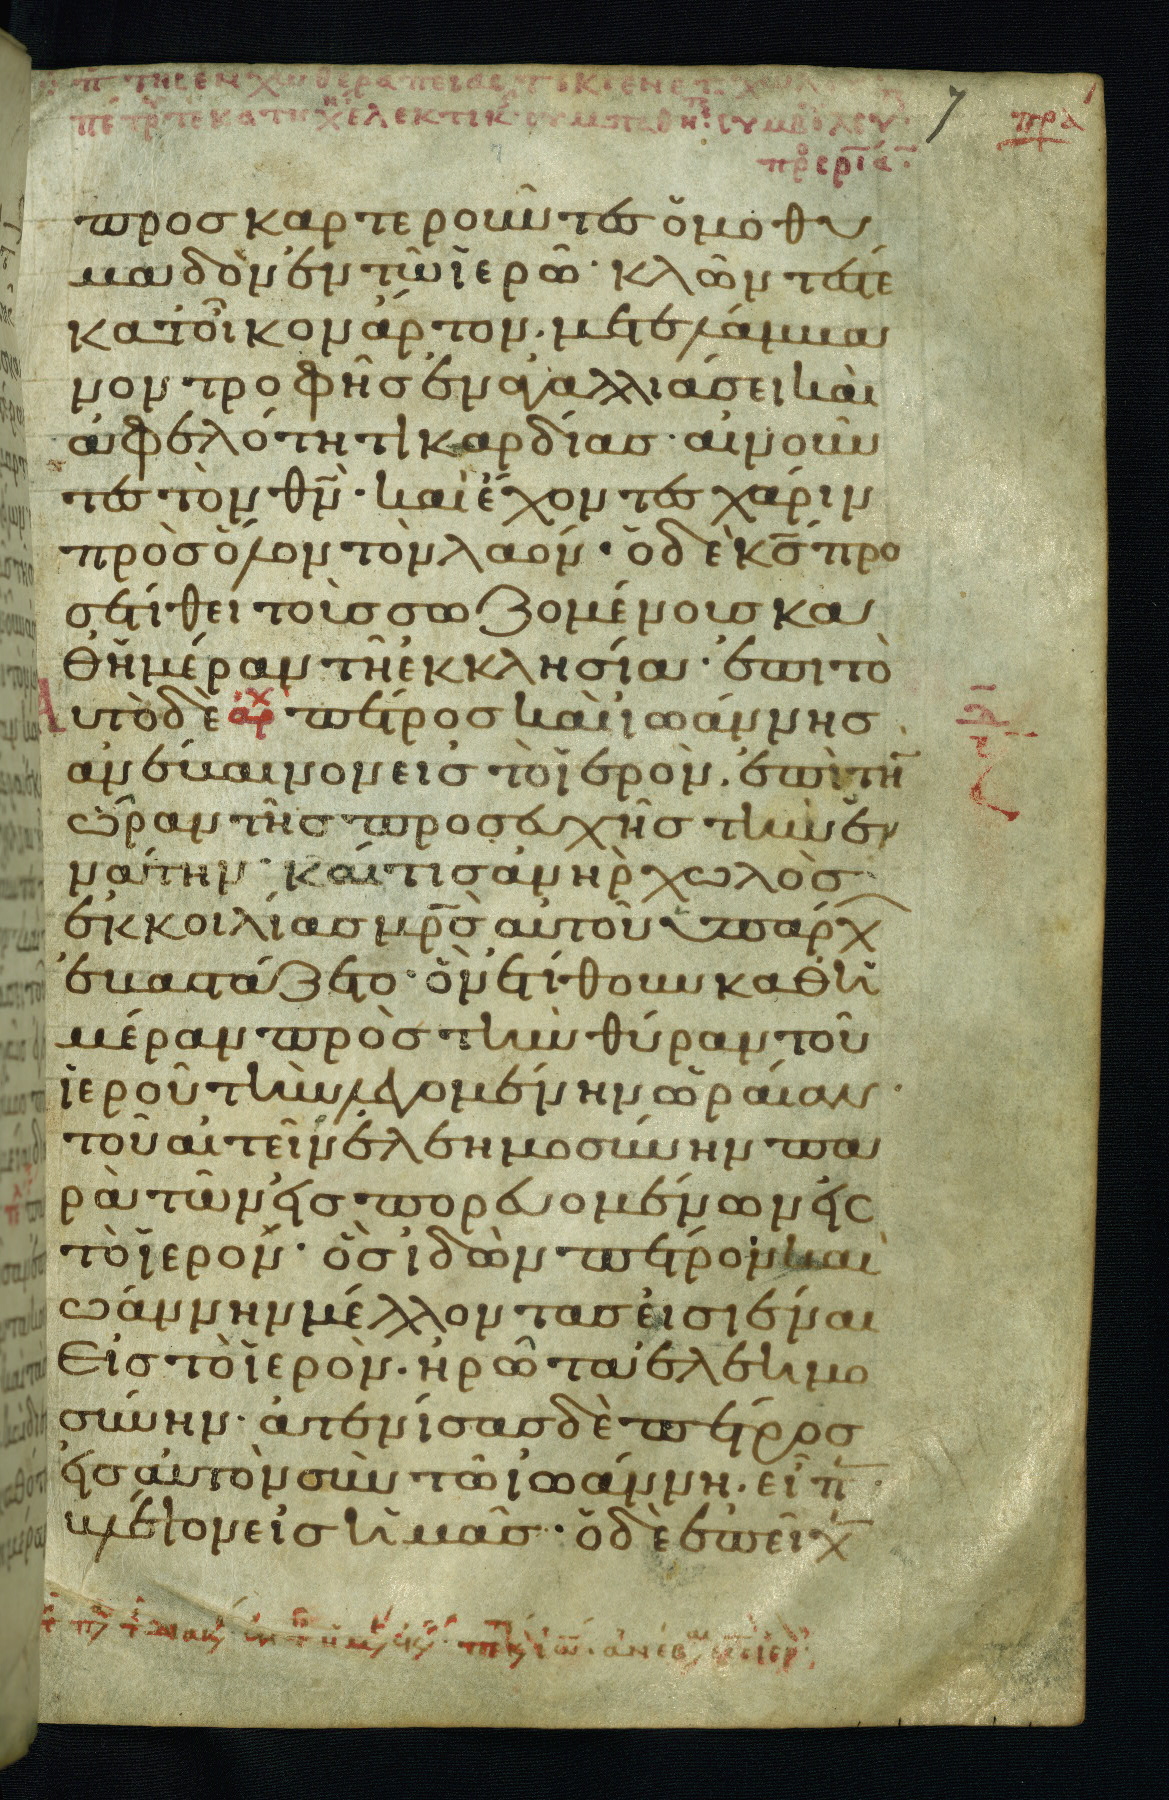 7
πρα
προσκαρτεροῦντες ὁμοθυ
μαδὸν ἐν τῶ ἱερῶ· κλῶντές τε
κατοῖκον ἄρτον. μετελάμβα
νον τροφῆς ἐν ἀγαλλιάσει καὶ
ἀφελότητι καρδίας· αἰνοῦν
τες τὸν θν̅· καὶ ἔχοντες χάριν
πρὸς ὅλον τὸν λαόν· ὁ δὲ κς̅ προ
σετίθει τοὺς σωζομένους κα
θημέραν τῆ ἐκκλησία· ἐπι τὸ
αυτὸ δὲ αρχ πέτρος καὶ ἰωάννης
ανέβαινον εἰς τὸ ἱερὸν. ἐπὶ τὴν
ὥραν τῆς προσευχῆς τὴν ἐν
νάτην· καί τις ἀνὴρ χωλὸς
ἐκ κοιλίας μρς̅ αὐτοῦ ὑπάρχ
ἐβαστάζετο· ὃν ἐτίθουν καθη
μέραν πρὸς τὴν θύραν τοῦ
ἱεροῦ τὴν λεγομένην ὡραίαν·
τοῦ αἰτεῖν ἐλεημοσύνην πα
ρὰ τῶν εἰσπορευομένων εἰς
τὸ ἱερόν· ὃς ἰδὼν πέτρον καὶ
ἰωάννην μέλλοντας εἰσιέναι
εἰς τὸ ἱερὸν. ἠρῶτα ἐλεημο
σύνην· ἀτενίσας δὲ πέτρος
εἰς αὐτὸν σὺν τῶ ἰωάννη. εἶπ
βλέψον εἰς ἡμᾶς· ὁ δὲ ἐπεῖχ